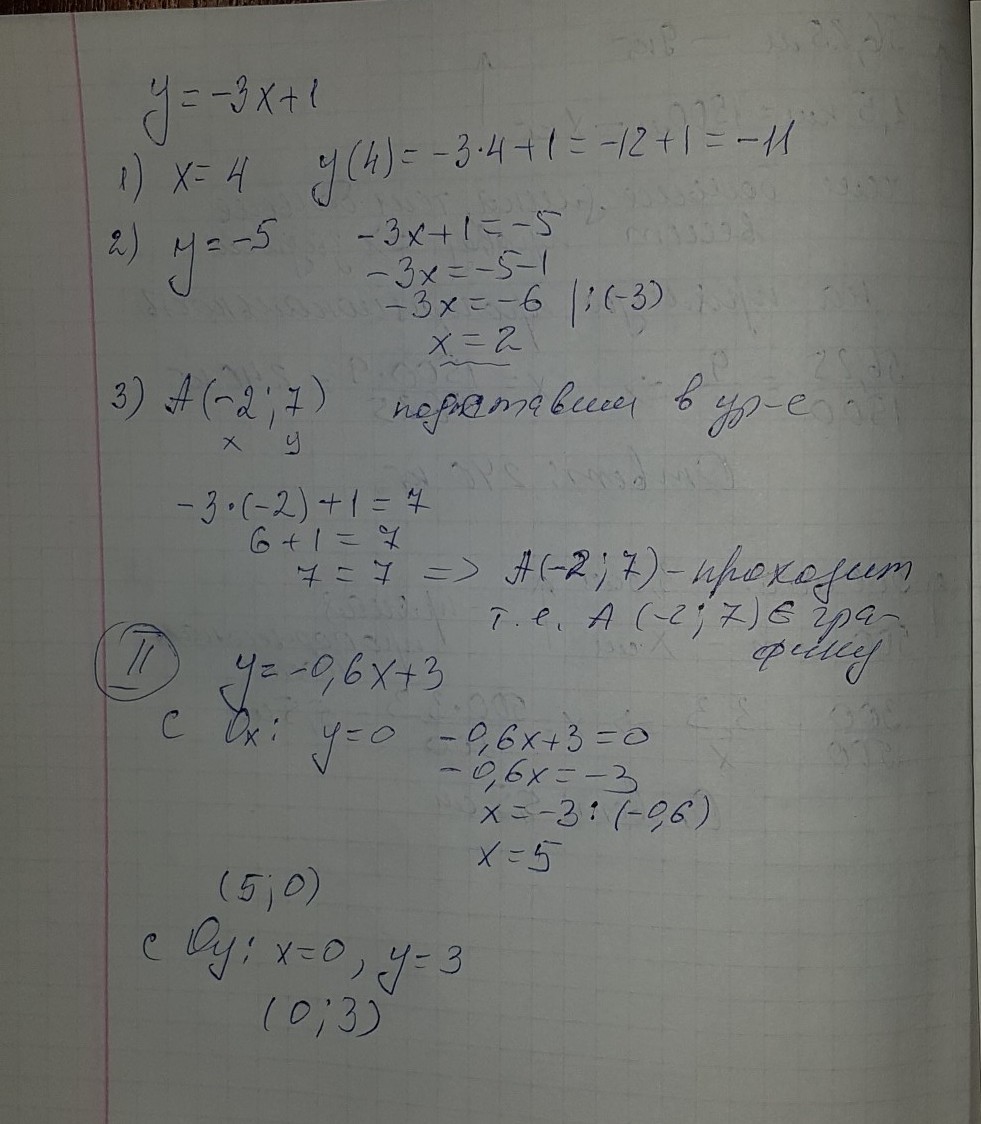 y = -3x+1
1) x = 4 y(4) = -3·4+1 = -12+1 = -11
2) y = -5 -3x+1 = -5
-3x = -5-1
-3x = -6 |:(-3)
x = 2
3) A(-2; 7) подставим в ур-е
x y
-3·(-2)+1 = 7
6+1 = 7
7 = 7 => A(-2; 7) - проходит
т.е. A (-2; 7) ∈ гра-
фику
II y = -0,6x+3
С Ox: y=0 -0,6x+3=0
-0,6x = -3
x = -3 : (-0,6)
x = 5
(5; 0)
с Oy: x=0, y=3
(0; 3)